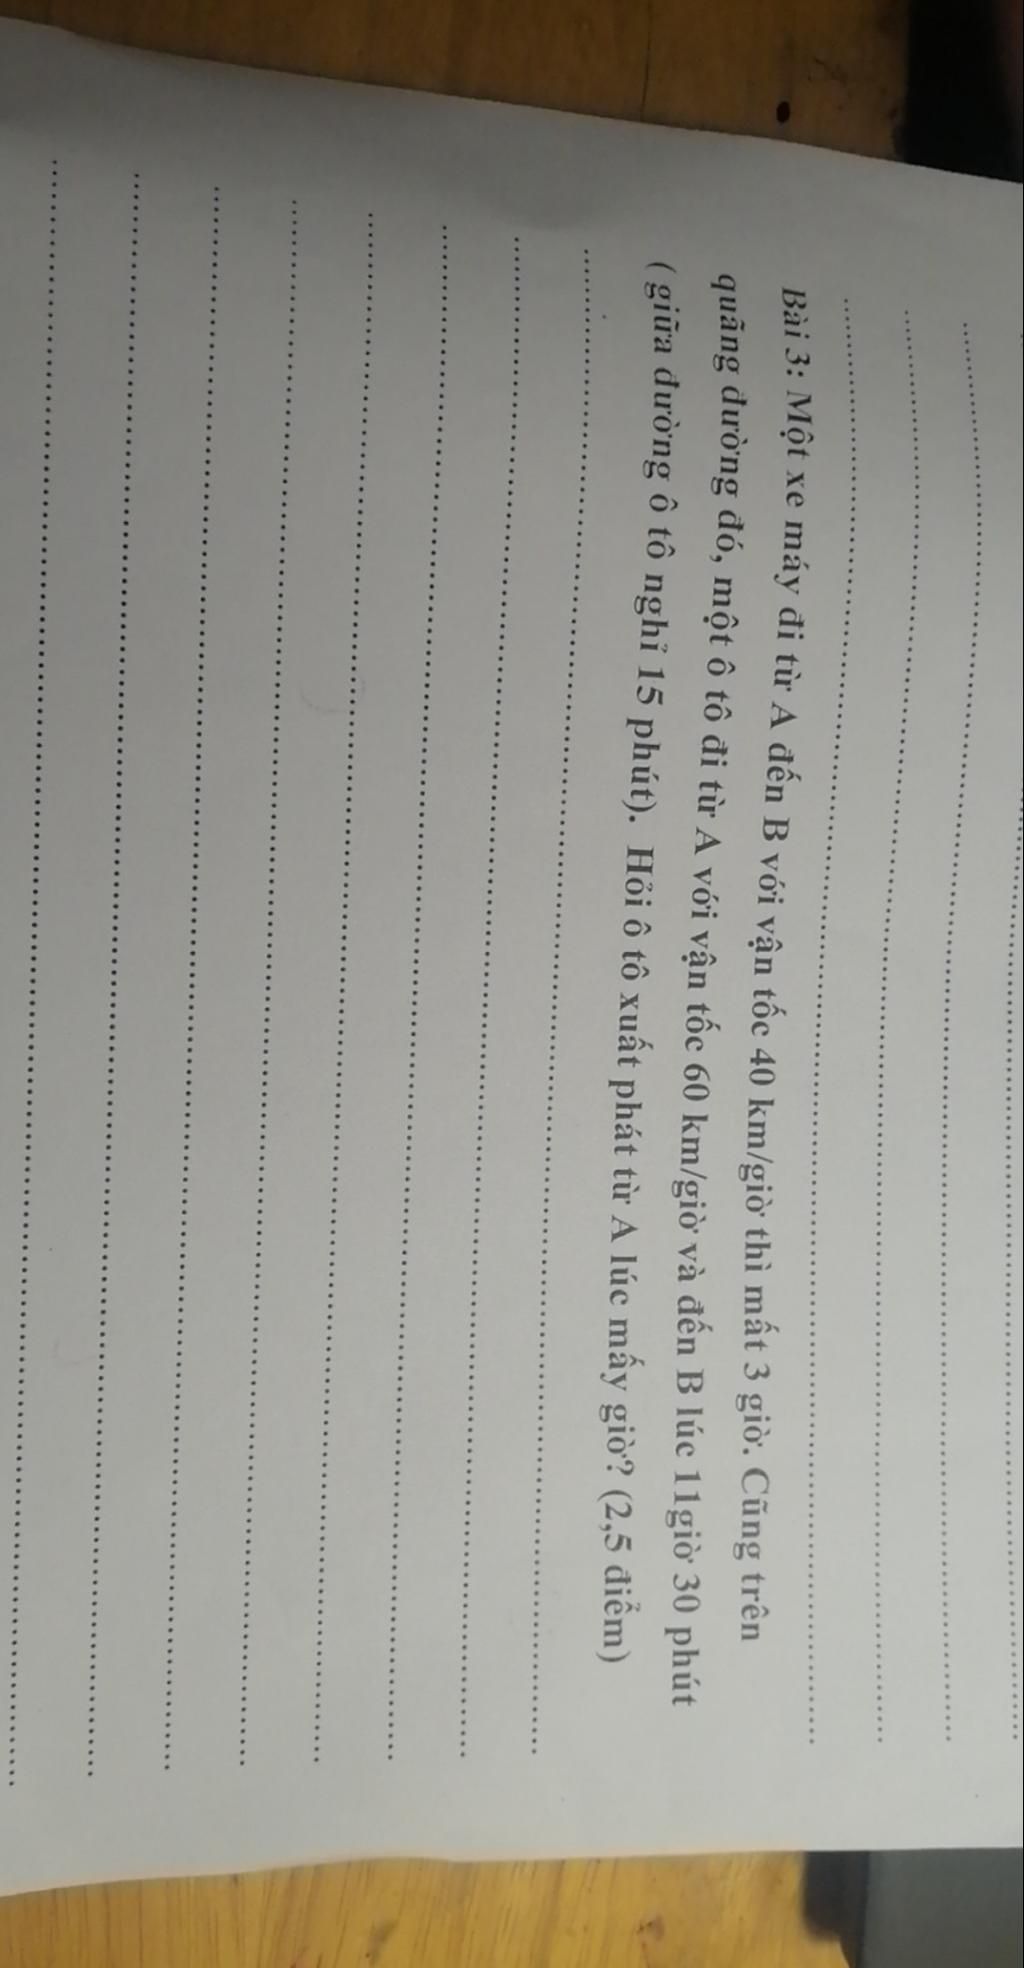 Bài 3: Một xe máy đi từ A đến B với vận tốc 40 km/giờ thì mất 3 giờ. Cũng trên
quãng đường đó, một ô tô đi từ A với vận tốc 60 km/giờ và đến B lúc 11giờ 30 phút
( giữa đường ô tô nghỉ 15 phút). Hỏi ô tô xuất phát từ A lúc mấy giờ? (2,5 điểm)